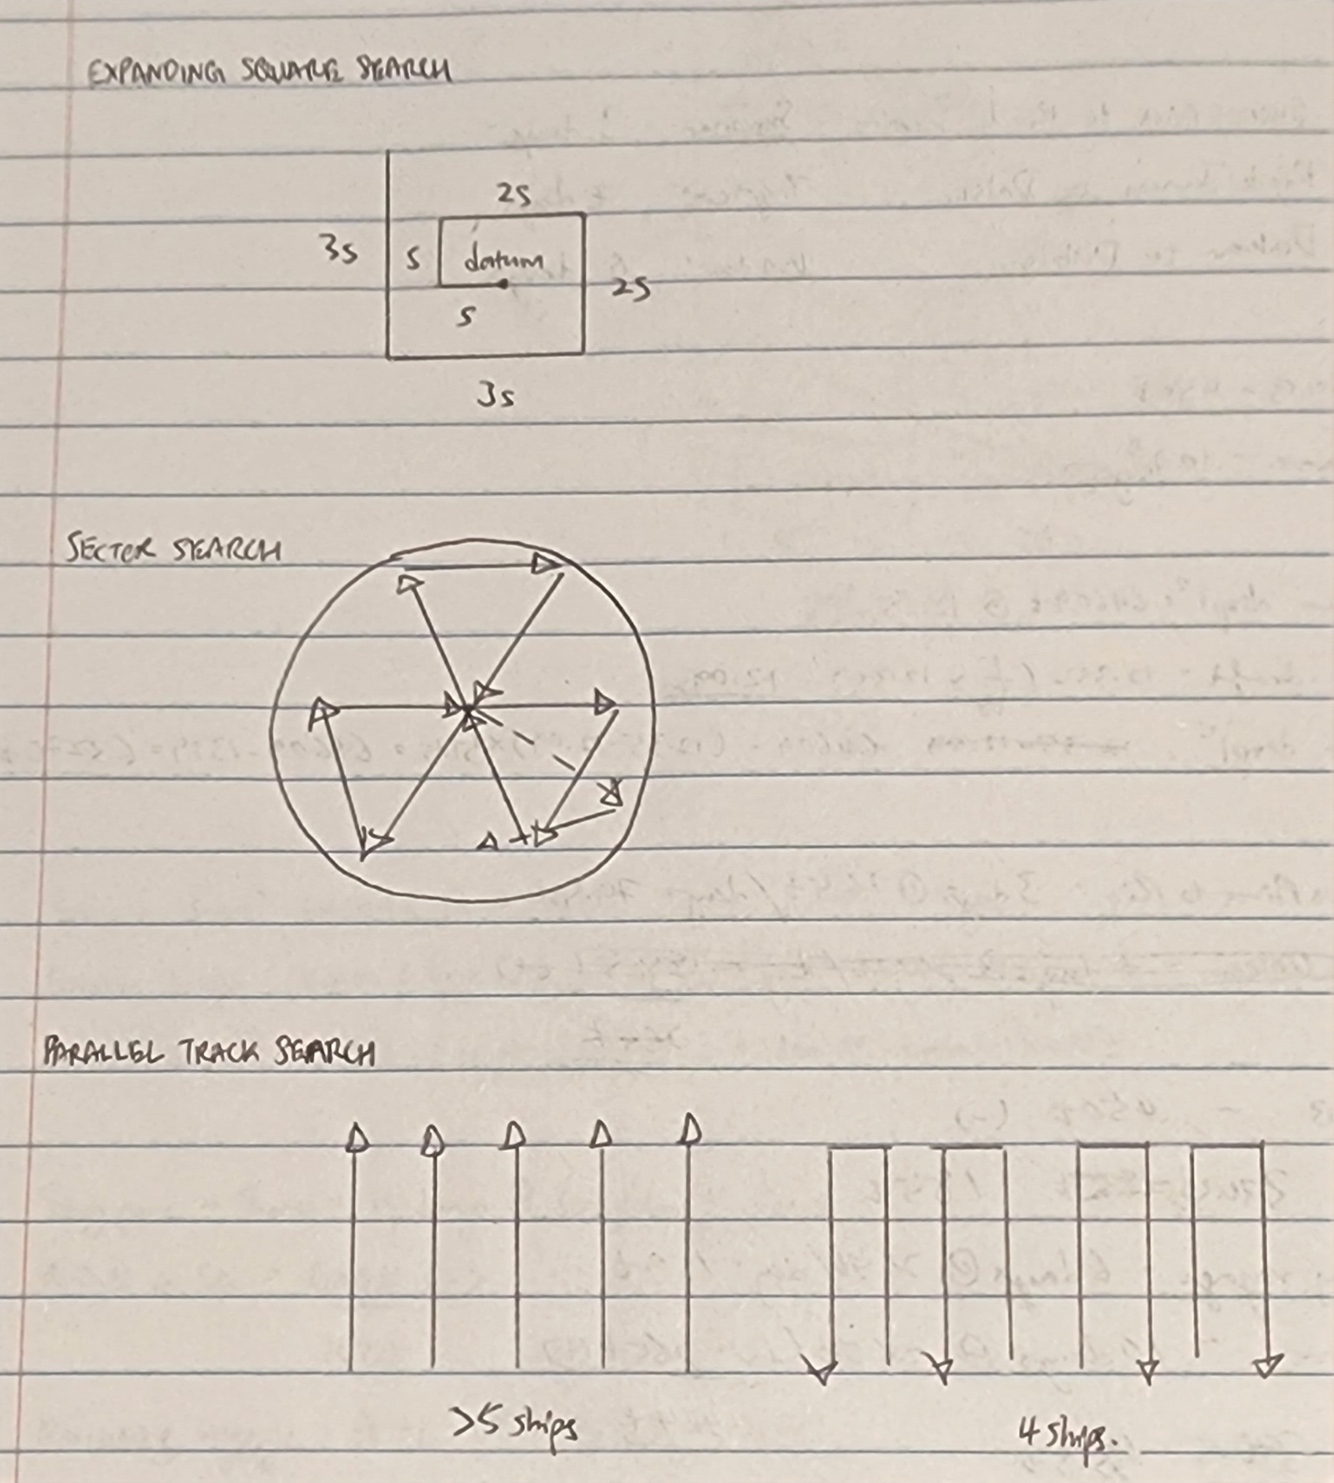 EXPANDING SQUARE SEARCH
2S
3S
S
datum
2S
S
3S
SECTOR SEARCH
PARALLEL TRACK SEARCH
>5 ships
4 ships.